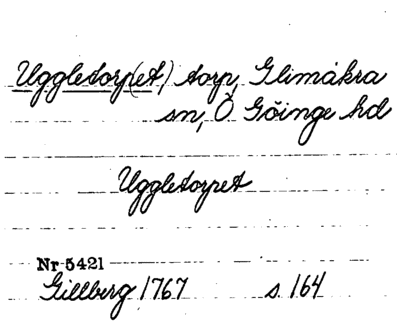 Uggletorp(et) torp, Glimåkra
sn, Ö Göinge hd
Uggletorpet
Nr 5421
Gillberg 1767 s 164